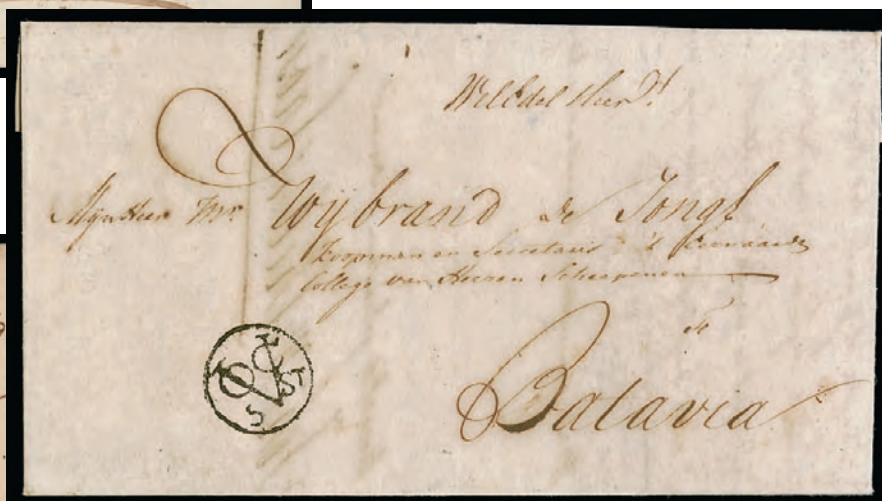 WelEdel Heer
Mijn Heer Mr. Wijbrand de Jongh
Koopman en Secretaris
Collegie van Heeren Scheepenen
Te
Batavia
VOC